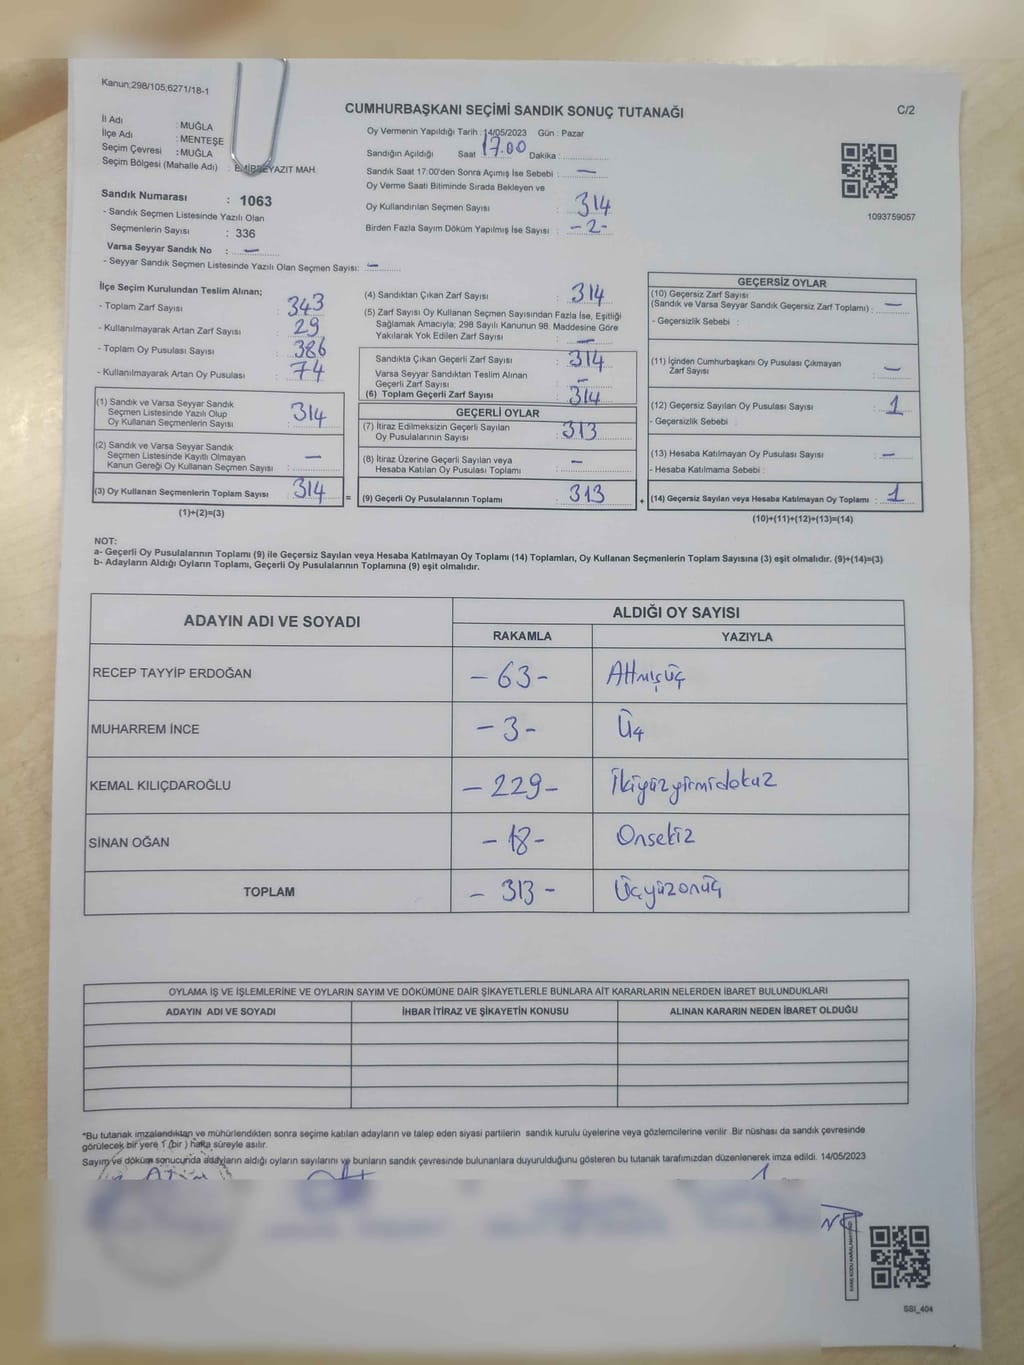 Kanun;298/105;6271/18-1
CUMHURBAŞKANI SEÇİMİ SANDIK SONUÇ TUTANAĞI
C/2
İl Adı : MUĞLA
İlçe Adı : MENTEŞE
Seçim Çevresi : MUĞLA
Seçim Bölgesi (Mahalle Adı) : EMİRBEYAZIT MAH.
Oy Vermenin Yapıldığı Tarih : 14/05/2023 Gün : Pazar
Sandığın Açıldığı Saat 17.00 Dakika :
Sandık Saat 17:00'den Sonra Açımış İse Sebebi : —
Oy Verme Saati Bitiminde Sırada Bekleyen ve
Oy Kullandırılan Seçmen Sayısı : 314
Birden Fazla Sayım Döküm Yapılmış İse Sayısı : -2-
1093759057
Sandık Numarası : 1063
- Sandık Seçmen Listesinde Yazılı Olan
Seçmenlerin Sayısı : 336
Varsa Seyyar Sandık No : —
- Seyyar Sandık Seçmen Listesinde Yazılı Olan Seçmen Sayısı: —
İlçe Seçim Kurulundan Teslim Alınan;
- Toplam Zarf Sayısı : 343
- Kullanılmayarak Artan Zarf Sayısı : 29
- Toplam Oy Pusulası Sayısı : 386
- Kullanılmayarak Artan Oy Pusulası : 74
(1) Sandık ve Varsa Seyyar Sandık
Seçmen Listesinde Yazılı Olup
Oy Kullanan Seçmenlerin Sayısı : 314
(2) Sandık ve Varsa Seyyar Sandık
Seçmen Listesinde Kayıtlı Olmayan
Kanun Gereği Oy Kullanan Seçmen Sayısı : —
(3) Oy Kullanan Seçmenlerin Toplam Sayısı : 314 =
(1)+(2)=(3)
(4) Sandıktan Çıkan Zarf Sayısı : 314
(5) Zarf Sayısı Oy Kullanan Seçmen Sayısından Fazla İse, Eşitliği
Sağlamak Amacıyla; 298 Sayılı Kanunun 98. Maddesine Göre
Yakılarak Yok Edilen Zarf Sayısı : —
Sandıkta Çıkan Geçerli Zarf Sayısı : 314
Varsa Seyyar Sandıktan Teslim Alınan
Geçerli Zarf Sayısı : —
(6) Toplam Geçerli Zarf Sayısı : 314
GEÇERLİ OYLAR
(7) İtiraz Edilmeksizin Geçerli Sayılan
Oy Pusulalarının Sayısı : 313
(8) İtiraz Üzerine Geçerli Sayılan veya
Hesaba Katılan Oy Pusulası Toplamı : —
(9) Geçerli Oy Pusulalarının Toplamı : 313 +
GEÇERSİZ OYLAR
(10) Geçersiz Zarf Sayısı
(Sandık ve Varsa Seyyar Sandık Geçersiz Zarf Toplamı) : —
- Geçersizlik Sebebi :
(11) İçinden Cumhurbaşkanı Oy Pusulası Çıkmayan
Zarf Sayısı : —
(12) Geçersiz Sayılan Oy Pusulası Sayısı : 1
- Geçersizlik Sebebi :
(13) Hesaba Katılmayan Oy Pusulası Sayısı : —
- Hesaba Katılmama Sebebi :
(14) Geçersiz Sayılan veya Hesaba Katılmayan Oy Toplamı : 1
(10)+(11)+(12)+(13)=(14)
NOT:
a- Geçerli Oy Pusulalarının Toplamı (9) ile Geçersiz Sayılan veya Hesaba Katılmayan Oy Toplamı (14) Toplamları, Oy Kullanan Seçmenlerin Toplam Sayısına (3) eşit olmalıdır. (9)+(14)=(3)
b- Adayların Aldığı Oyların Toplamı, Geçerli Oy Pusulalarının Toplamına (9) eşit olmalıdır.
ADAYIN ADI VE SOYADI ALDIĞI OY SAYISI
RAKAMLA YAZIYLA
RECEP TAYYİP ERDOĞAN -63- Altmışüç
MUHARREM İNCE -3- Üç
KEMAL KILIÇDAROĞLU -229- İkiyüzyirmidokuz
SİNAN OĞAN -18- Onsekiz
TOPLAM -313- Üçyüzonüç
OYLAMA İŞ VE İŞLEMLERİNE VE OYLARIN SAYIM VE DÖKÜMÜNE DAİR ŞİKAYETLERLE BUNLARA AİT KARARLARIN NELERDEN İBARET BULUNDUKLARI
ADAYIN ADI VE SOYADI İHBAR İTİRAZ VE ŞİKAYETİN KONUSU ALINAN KARARIN NEDEN İBARET OLDUĞU
*Bu tutanak imzalandıktan ve mühürlendikten sonra seçime katılan adayların ve talep eden siyasi partilerin sandık kurulu üyelerine veya gözlemcilerine verilir. Bir nüshası da sandık çevresinde
görülecek bir yere 1 (bir ) hafta süreyle asılır.
Sayım ve döküm sonucunda adayların aldığı oyların sayılarını ve bunların sandık çevresinde bulunanlara duyurulduğunu gösteren bu tutanak tarafımızdan düzenlenerek imza edildi. 14/05/2023
SSI_404